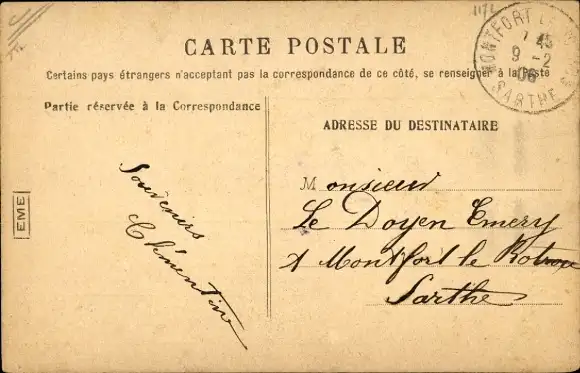 CARTE POSTALE
Certains pays étrangers n'acceptant pas la correspondance de ce côté, se renseigner à la Poste
Partie réservée à la Correspondance
ADRESSE DU DESTINATAIRE
Souvenirs
Clémentine
Monsieur
Le Doyen Emery
A Montfort le Rotrou
Sarthe
EME
MONTFORT
7 45
9 -2
06
SARTHE